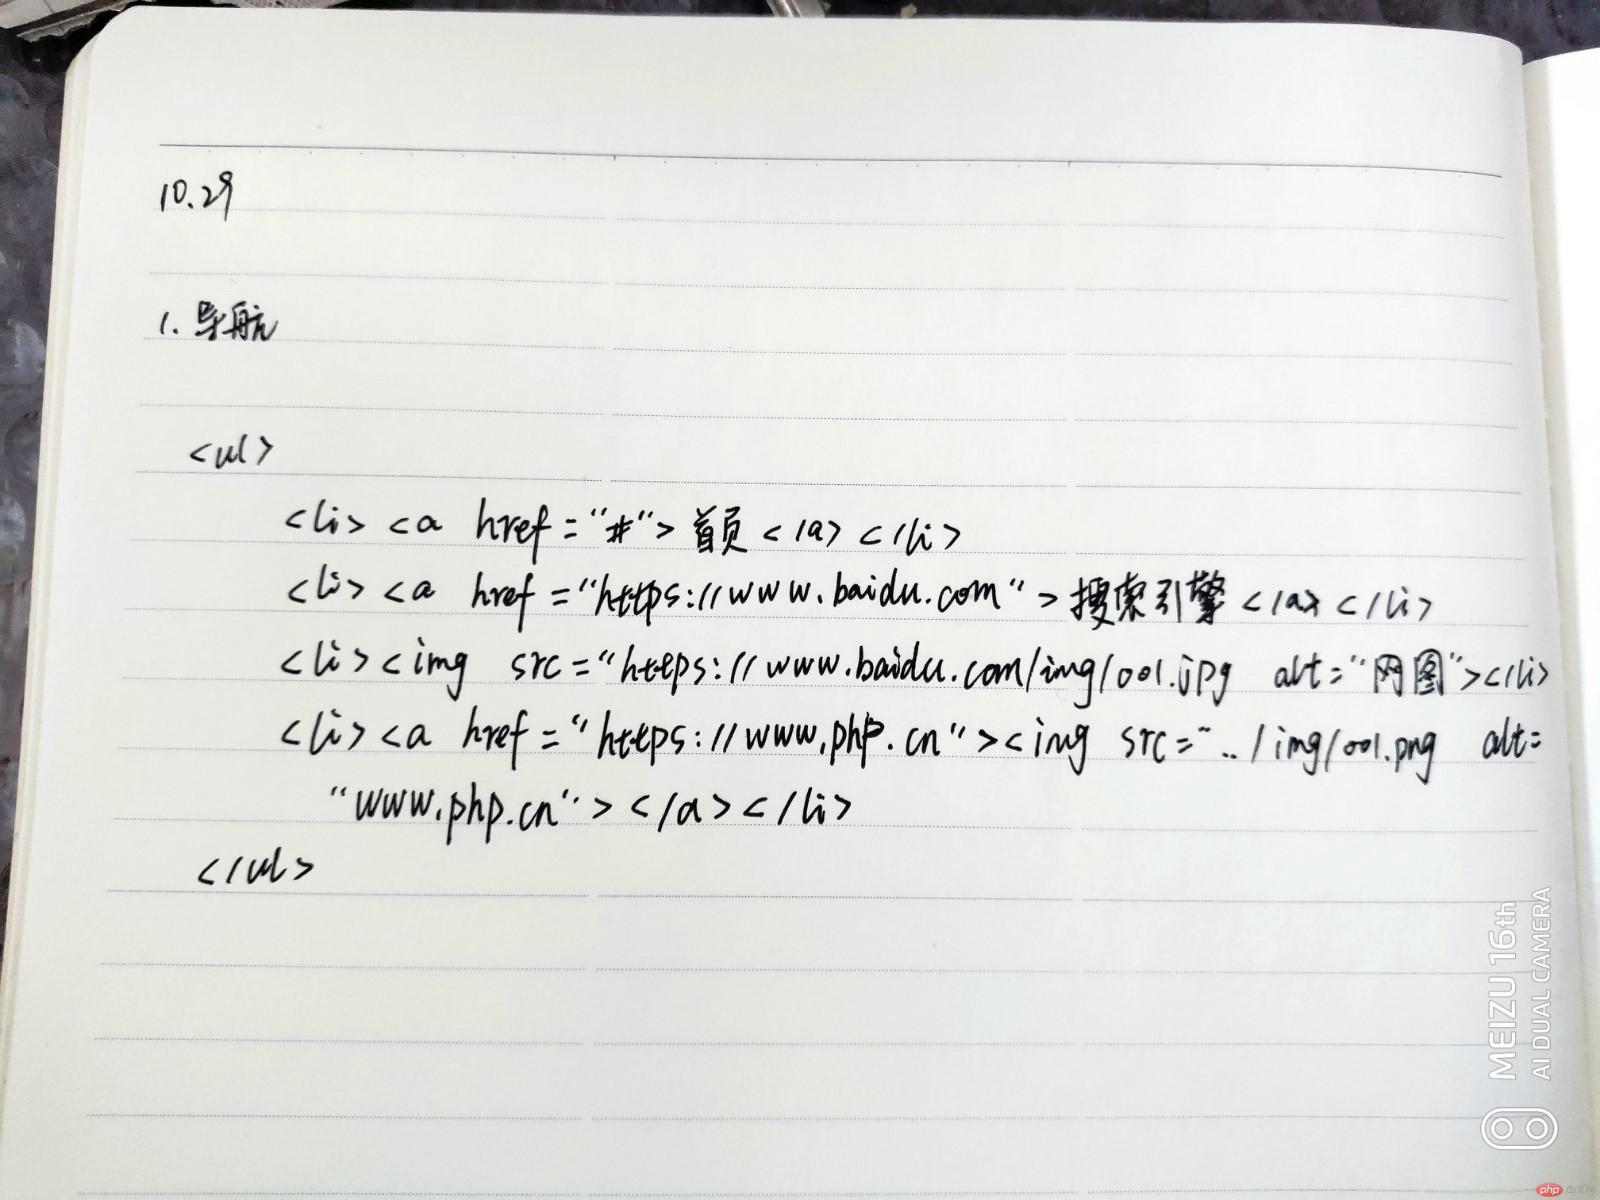 10.29
1. 导航
<ul>
<li> <a href="#"> 首页 </a> </li>
<li> <a href="https://www.baidu.com"> 搜索引擎 </a> </li>
<li><img src="https://www.baidu.com/img/001.jpg alt="网图"></li>
<li><a href="https://www.php.cn"><img src="../img/001.png alt=
"www.php.cn"></a></li>
</ul>
MEIZU 16th
AI DUAL CAMERA
php 中文网